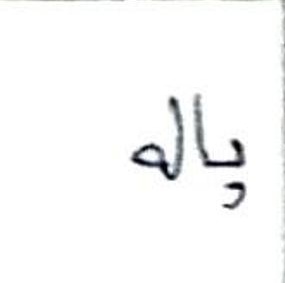 پاله